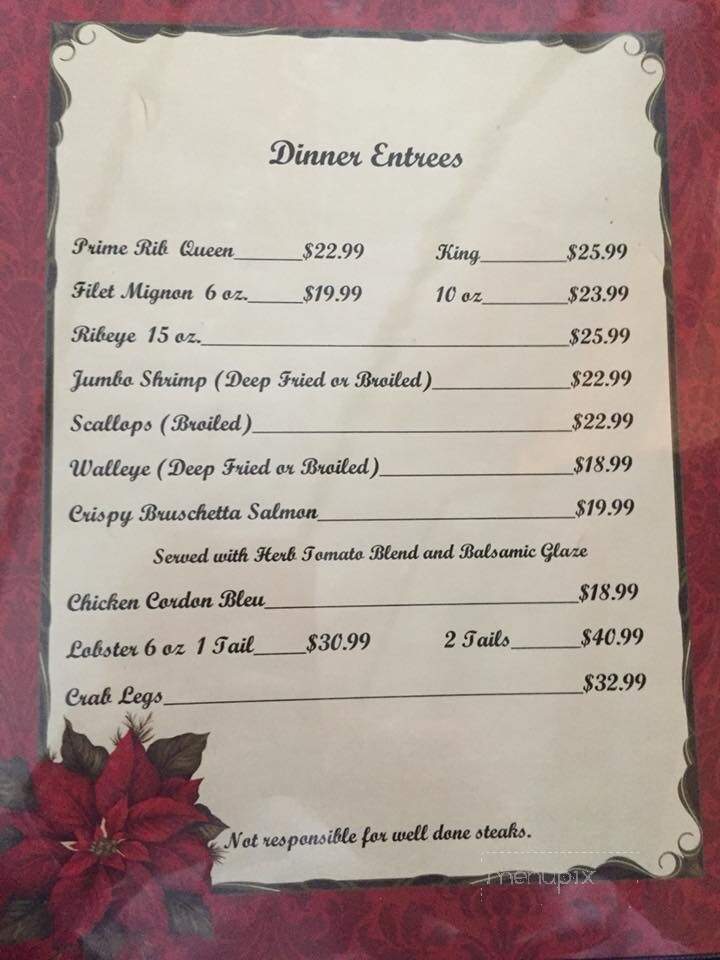 Dinner Entrees
Prime Rib Queen______$22.99 King________$25.99
Filet Mignon 6 oz._____$19.99 10 oz________$23.99
Ribeye 15 oz.__________________________________$25.99
Jumbo Shrimp (Deep Fried or Broiled)_____________$22.99
Scallops (Broiled)______________________________$22.99
Walleye (Deep Fried or Broiled)__________________$18.99
Crispy Bruschetta Salmon________________________$19.99
Served with Herb Tomato Blend and Balsamic Glaze
Chicken Cordon Bleu_____________________________$18.99
Lobster 6 oz 1 Tail_____$30.99 2 Tails_______$40.99
Crab Legs_______________________________________$32.99
Not responsible for well done steaks.
menupix